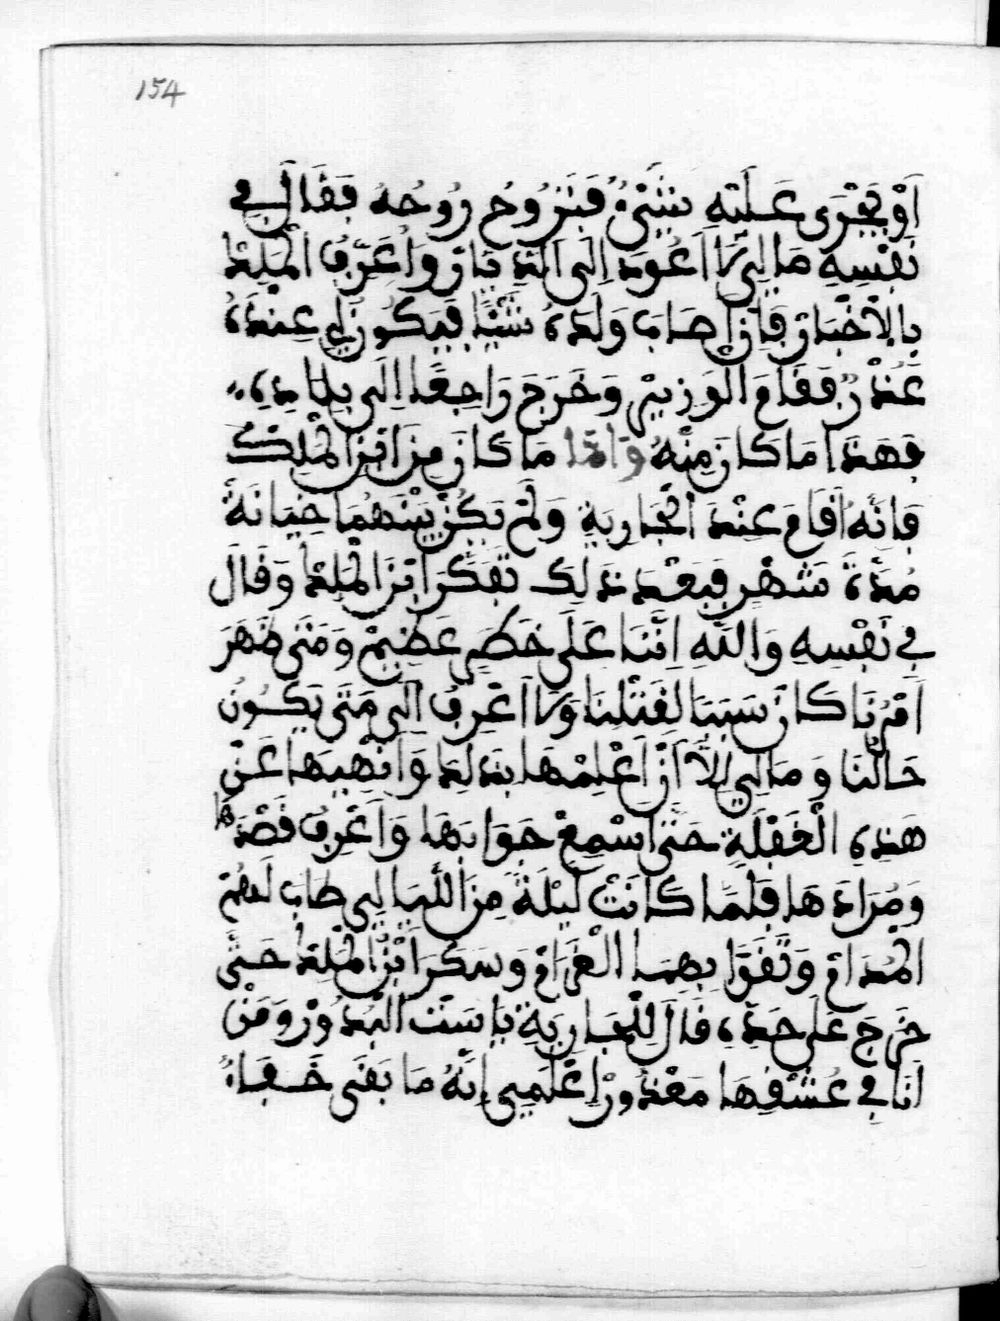 154
اَوْ يَجْرَى عَلَيْهِ شَيْءٌ فَتَرُوحُ رُوحُهُ فَقَالَ فِي
نَفْسِهِ مَا لِي لَا اَعُودَ اِلَى الدِّيَارْ وَاُعَرِّفُ الْمَلِكْ
بِالْاَخْبَارْ فَاِنْ اصَابَ وَلَدَهُ شَيْئًا فَيَكُونْ لِي عِنْدَهُ
عُذْرٌ فَقَامَ الْوَزِيرْ وَخَرَجَ رَاجِعًا اِلَى بِلَادِهِ
فَهَذَا مَا كَانَ مِنْهُ وَامَّا مَا كَانَ مِنَ ابْنَ الْمَلِكْ
فَاِنَّهُ اَقَامَ عِنْدَ الْجَارِيَةِ وَلَمْ يَكُنْ بَيْنَهُمَا خِيَانَةً
مُدَّةَ شَهْرٍ فَبَعْدَ ذَلِكَ تَفَكَّرَ ابْنَ الْمَلِكْ وَقَالَ
فِي نَفْسِهِ وَاللهِ اِنَّنَا عَلَى خَطَرٍ عَظِيمْ وَمَتَى ظَهَرَ
اَمْرُنَا كَانَ سَبَبَا لِقَتْلِنَا وَلَا اَعْرِفُ اِلَى مَتَى يَكُونُ
حَالُنَا وَمَا لِي اِلَّا اَنْ اُعْلِمْهَا بِذَلِكَ وَاَنْهِيهَا عَنْ
هَذِهِ الْغَفْلَةِ حَتَّى اسْمِعْ جَوَابَهَا وَاَعْرِفْ قَصْدَهَا
وَمُرَادَهَا فَلَمَّا كَانَتْ لَيْلَةً مِنَ اللَّيَالِي طَابَ لَهُمْ
الْمُدَامْ وَتَقَوَّا بِهِمَا الْغَرَامْ وَسَكَرَ ابْنَ الْمَلِكْ حَتَّى
خَرَجَ عَلَى حَدِّهِ قَالَ لِلْجَارِيَةْ يَا سَتْ الْبُدُورْ وَمَنْ
اَنَا فِي عُشْقِهَا مَعْذُورْ اِعْلَمِي اِنَّهُ مَا بَقَى خَفَاءُ